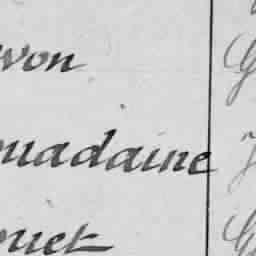 von
ouadaine
ouet